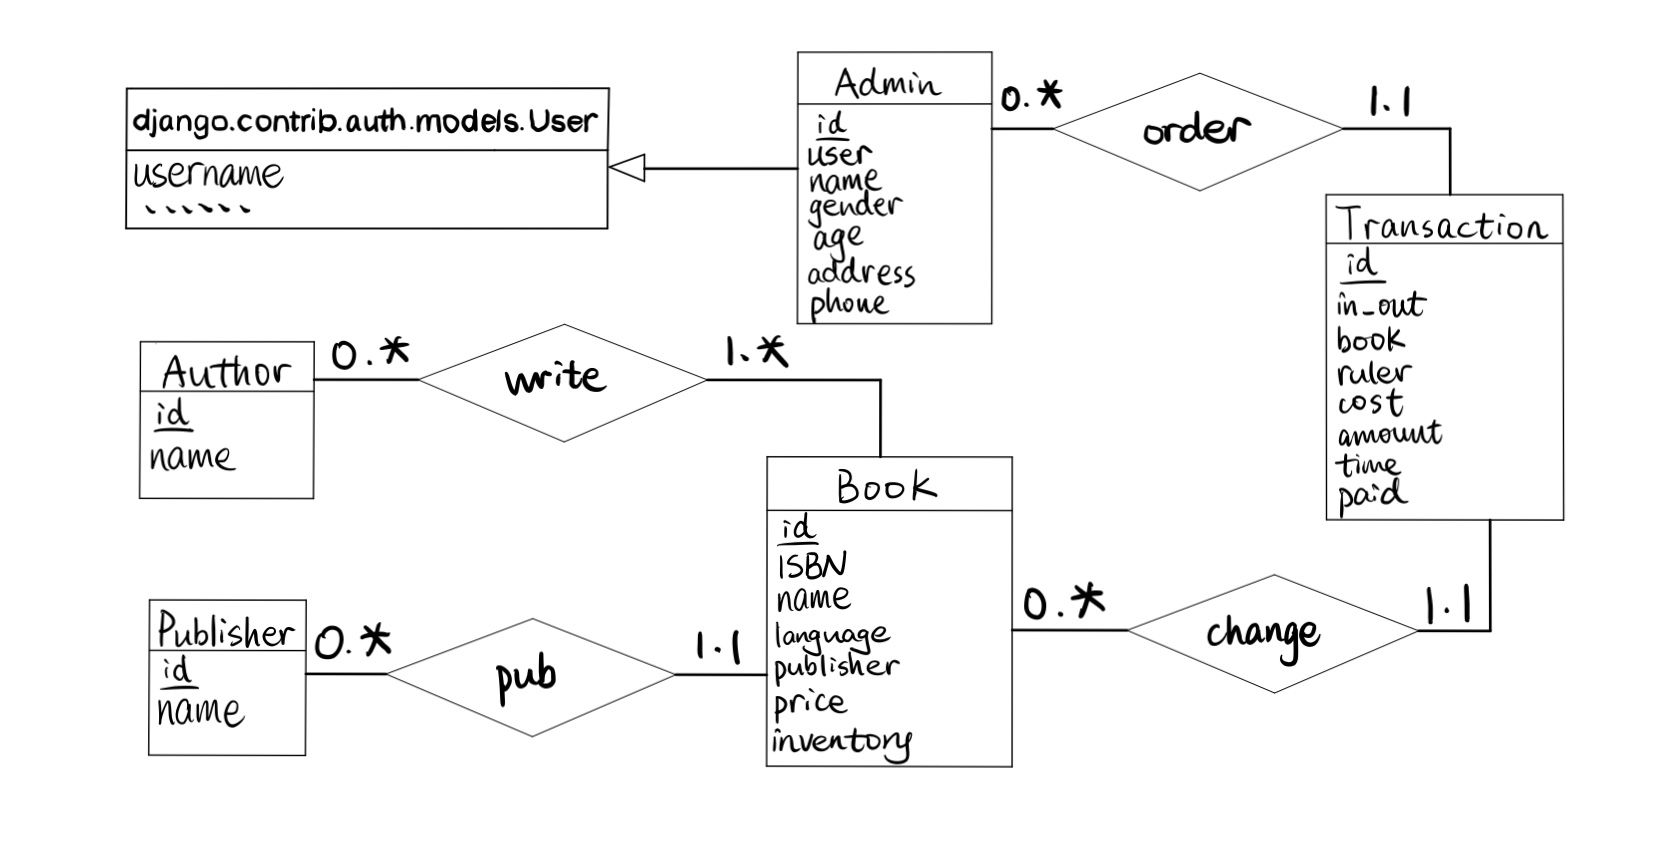 django.contrib.auth.models.User
username
......
Admin
id
user
name
gender
age
address
phone
0.*
order
1.1
Transaction
id
in_out
book
ruler
cost
amount
time
paid
Author
id
name
0.*
write
1.*
Book
id
ISBN
name
language
publisher
price
inventory
Publisher
id
name
0.*
pub
1.1
0.*
change
1.1